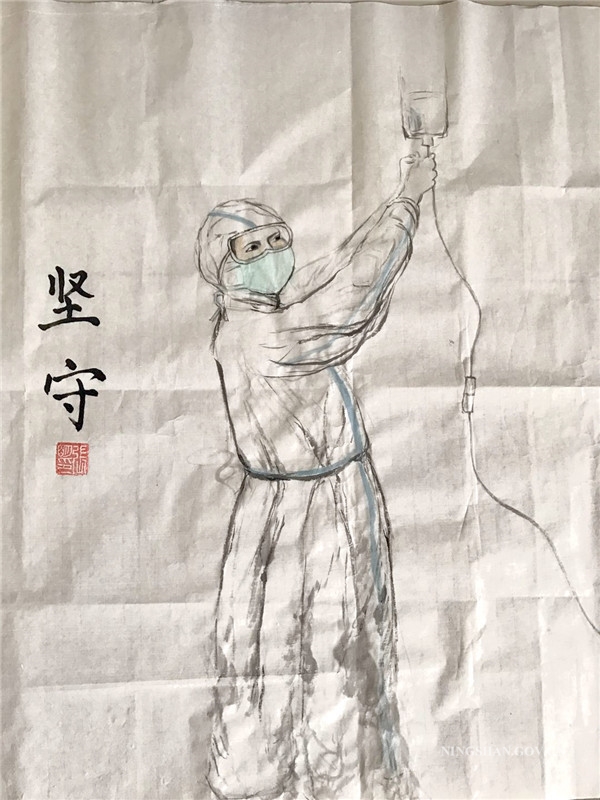 坚守
NINGSHAN.GOV